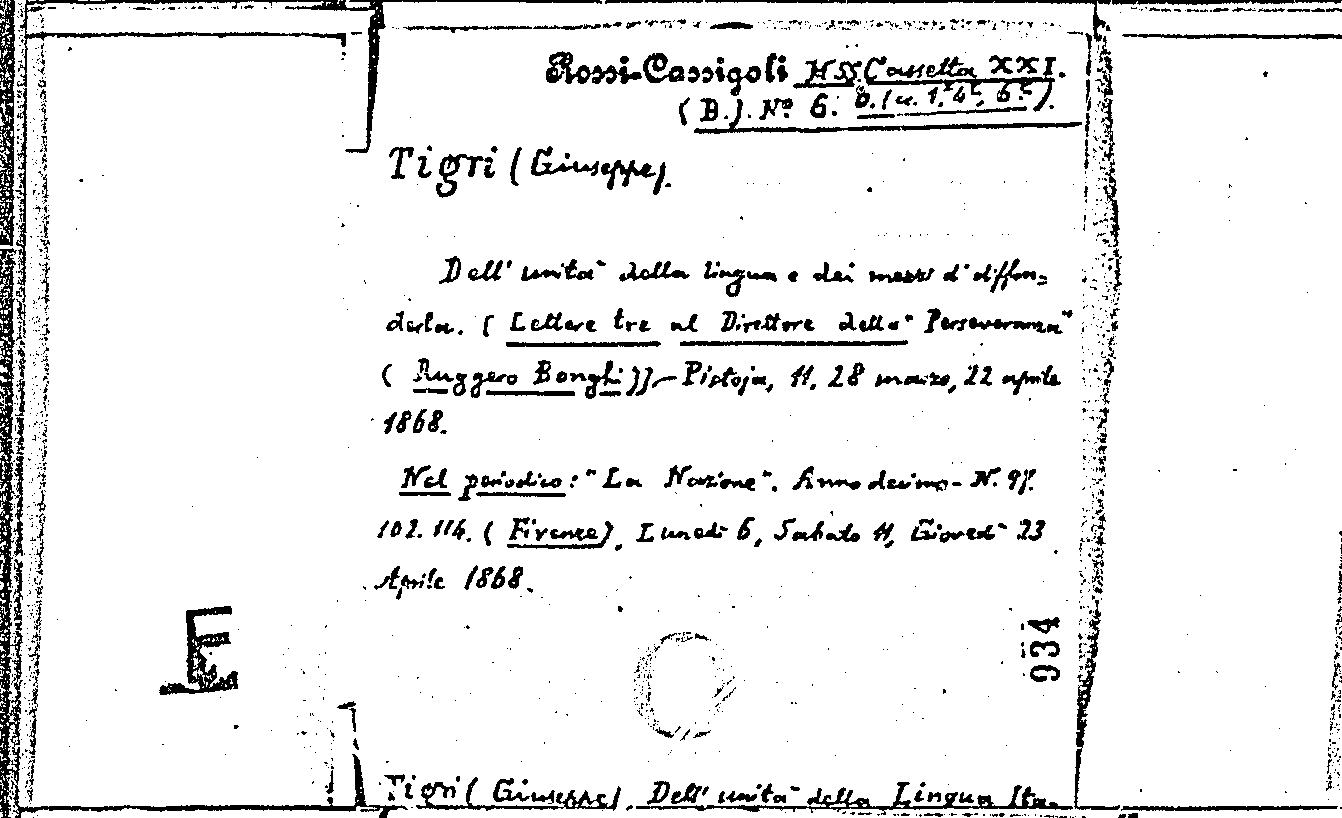 Rossi-Cassigoli MSS. Cassetta XXI.
(B.). Nº 6.
Tigri (Giuseppe).
Dell' unità della lingua e dei mezzi d' diffon=
derla. (Lettere tre al Direttore della "Perseveranza"
(Ruggero Bonghi)).— Pistoja, 11, 28 marzo, 22 aprile
1868.
Nel periodico: "La Nazione". Anno decimo - N. 97.
102. 114. (Firenze), Lunedì 6, Sabato 11, Giovedì 23
Aprile 1868.
E
934
Tigri (Giuseppe). Dell' unità della Lingua Ita-